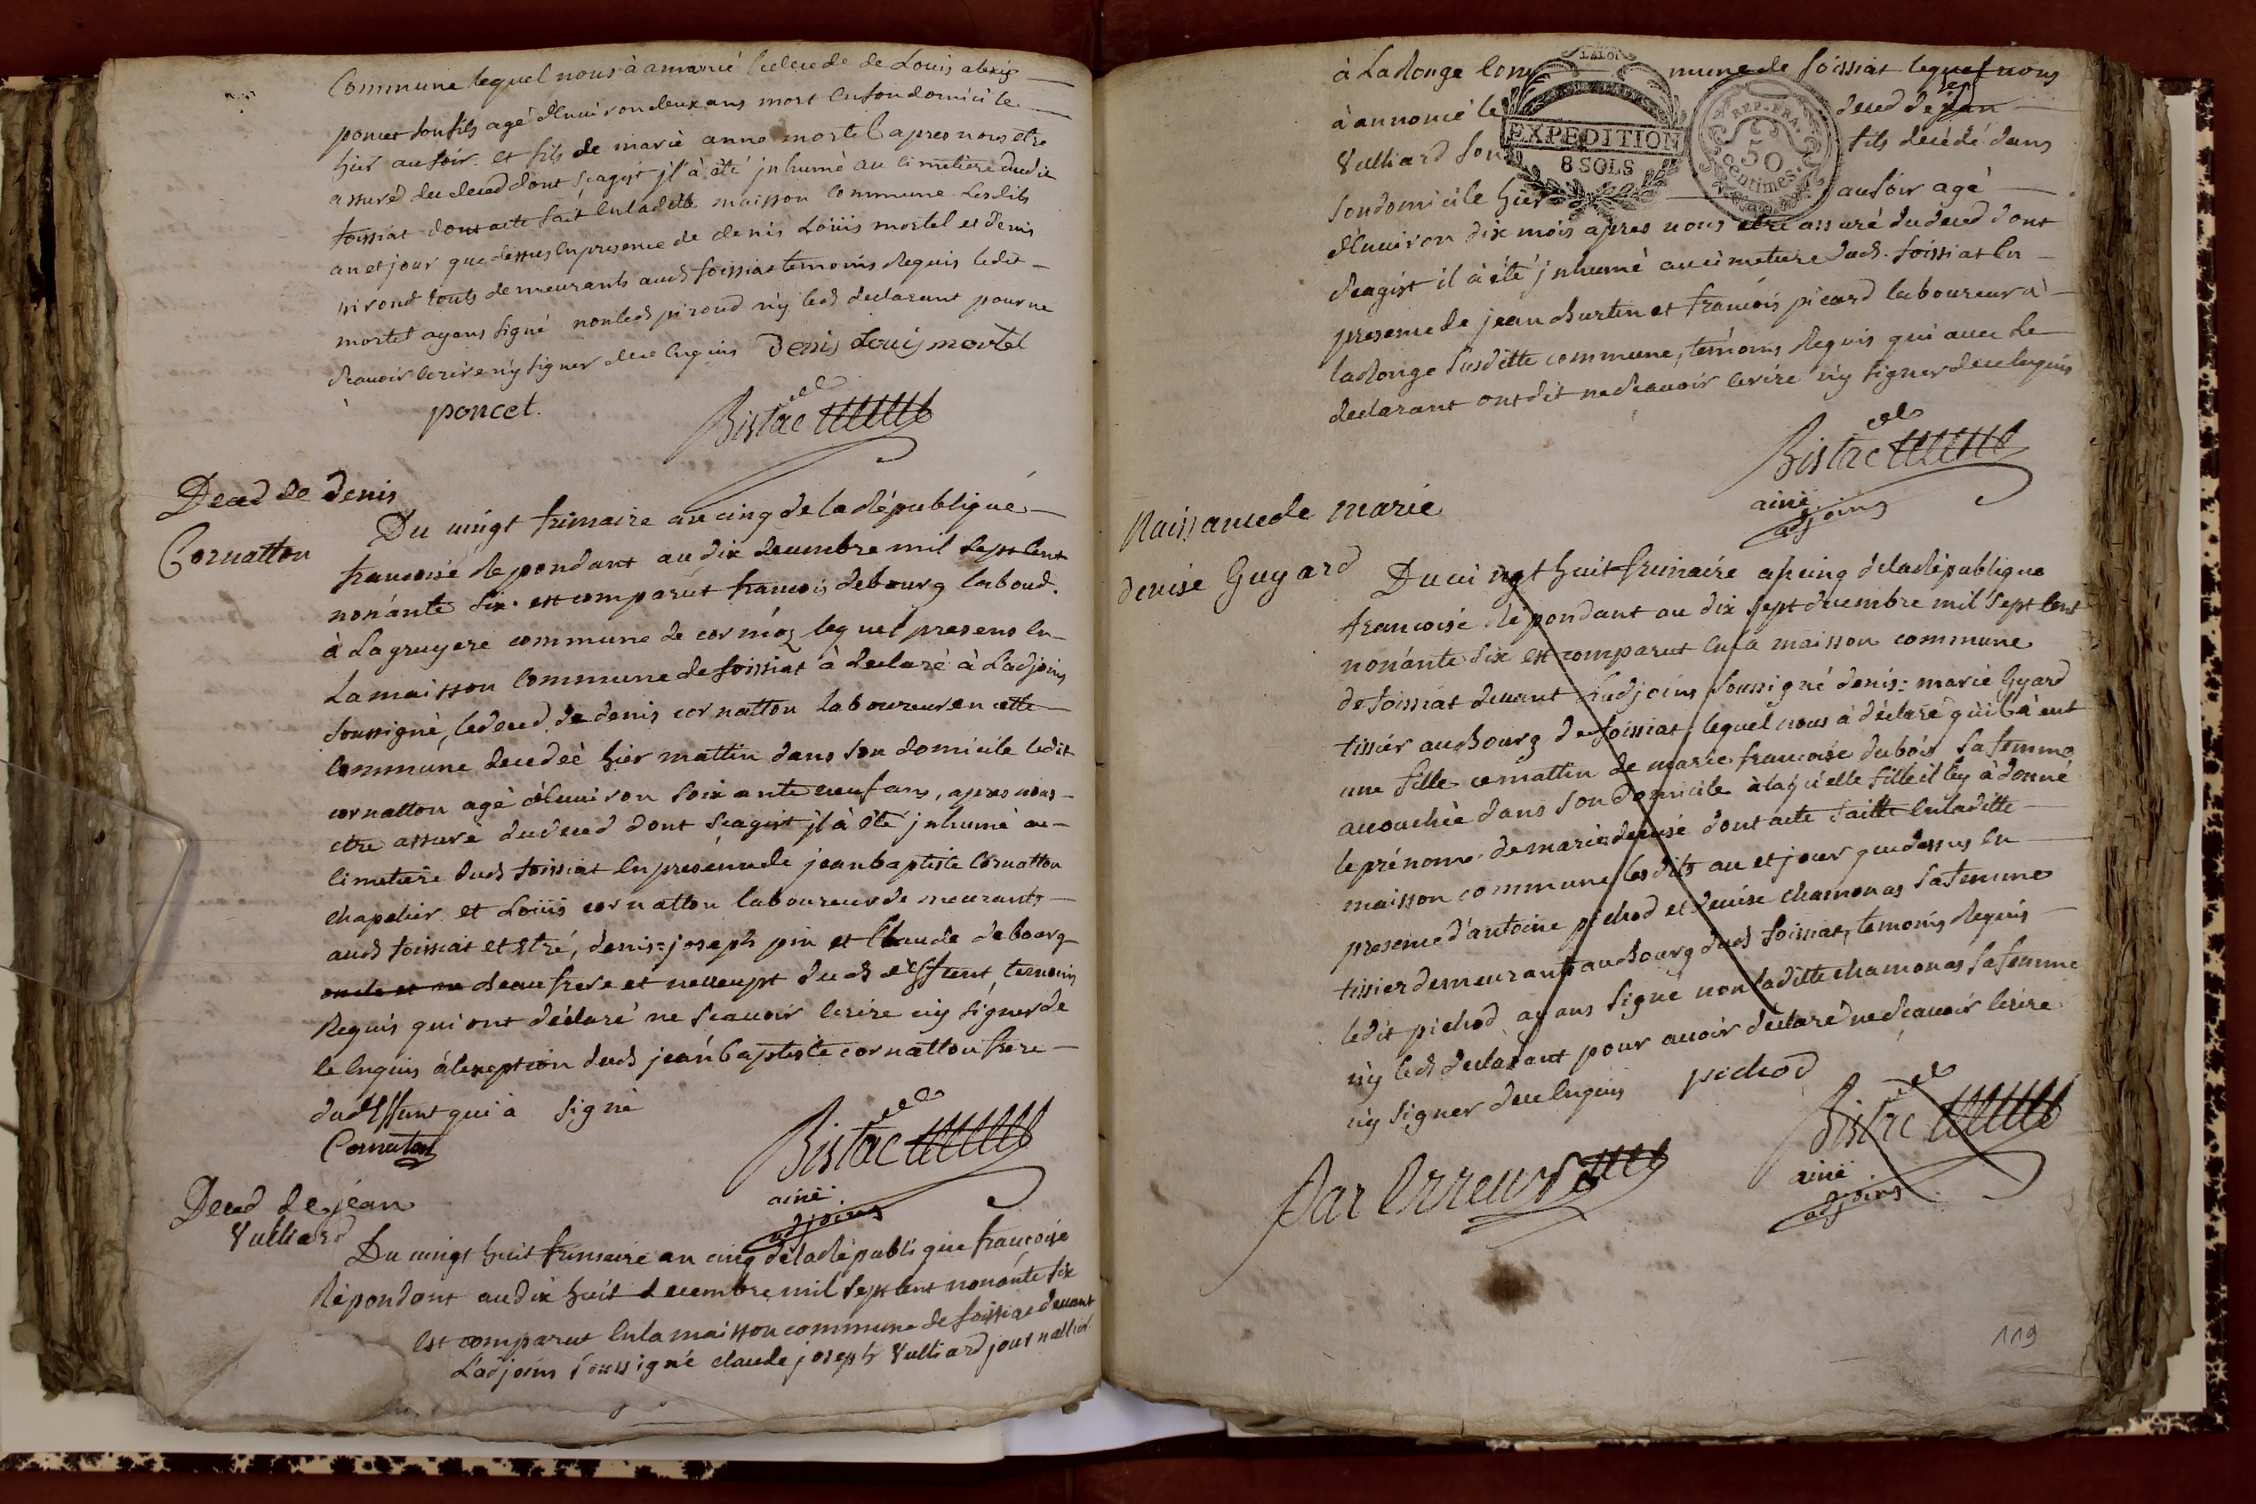 Commune lequel nous à annoncé le deced de Louis alexis
poncet son fils agé d'environ deux ans mort en son domicile
hier au soir et fils de marie anne mortel apres nous etre
assuré du deced dont s'agist jl à été jnhumé au cimetiere dudit
foissiat dont acte fait en laditte maisson commune lesdits
an et jour que dessus en presence de denis Louis mortel et denis
piroud touts demeurants aud foissiat temoins Requis ledit
mortel ayans signé non led piroud n'y led declarant pour ne
scavoir ecrire n'y signer de ce enquis Denis Louis mortel
poncet. Bistac
Deced de denis
Cornatton
Du vingt frimaire an cinq de la République
francoise Repondant au dix decembre mil sept cent
nonante six est comparut francois debourg laboud.
à Lagruyere commune de cormoz lequel presens en
La maisson commune de foissiat à declaré à L'adjoins
soussigné, le deced de denis cornatton laboureur en cette
commune decedeé hier mattin dans son domicile ledit
cornatton agé d'environ soixante neuf ans, apres nous
etre assuré du deced dont s'cagist jl à été jnhumé au
cimetiere dud foissiat en presence de jean baptiste Cornatton
chapelier et Loüis cornatton laboureur demeurants
aud foissiat et Etré, denis=joseph pin et Claude debourg
oncle et un beau frere et nevenpt dud deffunt, temoins
Requis qui ont déclaré ne scavoir ecrire n'y signer de
ce enquis à l'exeption dud jean baptiste cornatton frere
dud Effunt qui à signé
Cornaton Bistac
ainé
adjoins
Deced de jean
Vulliard
Du vingt huit frimaire an cinq de la République francoise
Répondant au dix huit decembre mil sept cent nonante six
est comparut en la maisson commune de foissiat devant
L'adjoins soussigné claude joseph Vulliard journallier
à LaRonge com mune de foissiat lequel nous
à annoncé le deced de jean
LA LOI
EXPEDITION
8 SOLS
REP. FRA.
50
centimes.
Vulliard son fils decédé dans
son domicile hier au soir agé
d'environ dix mois apres nous etre assuré du deced dont
s'cagist il à été jnhumé au cimetiere dud. foissiat en
presence de jean Burtin et francois picard laboureur à
laRonge susditte commune, temoins Requis qui avec le
declarant ont dit ne scavoir ecrire n'y signer de ce enquis
Bistac
ainé
adjoins
Naissance de marie
denise Guyard
Du vingt huit frimaire an cinq de la République
francoise Répondant au dix sept decembre mil sept cent
nonante six est comparut en la maisson commune
de foissiat devant L'adjoins soussigné denis=marie Gyard
tissier au Bourg de foissiat, lequel nous à déclaré qu'il à eut
une fille ce mattin de marie francoise dubois sa femme
accouchée dans son domicile à laquelle fille il luy à donné
le prénoms de marie denise dont acte faitte en laditte
maisson commune lesdits an et jour que dessus en
presence d'antoine pichod et denise chamonas sa femme
tissier demeurant au Bourg dud foissiat, temoins Requis
ledit pichod ayans signé non laditte chamonas sa femme
n'y led declarant pour avoir déclaré ne scavoir ecrire
n'y signer de ce enquis pichod
Bistac
ainé
adjoins
Par Erreur
119